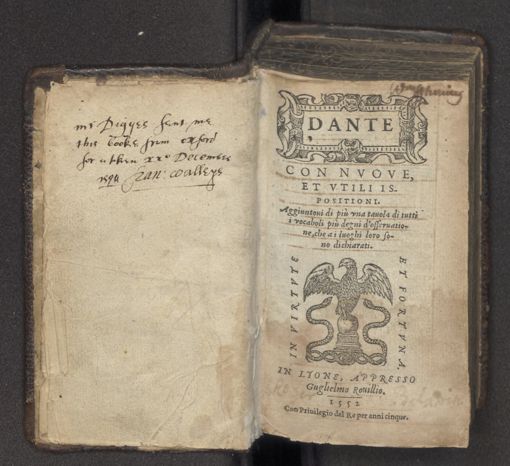 mr Digges sent me
this booke from oxford
Decemb
1594 Fran:
DANTE
CON NVOVE,
ET VTILI IS-
POSITIONI.
Aggiuntoui di più vna tauola di tutti
i vocaboli più degni d'osseruatio-
ne, che a i luoghi loro so-
no dichiarati.
IN VIRTVTE
ET FORTVNA
IN LYONE, APPRESSO
Guglielmo Rouillio.
1552
Con Priuilegio del Re per anni cinque.